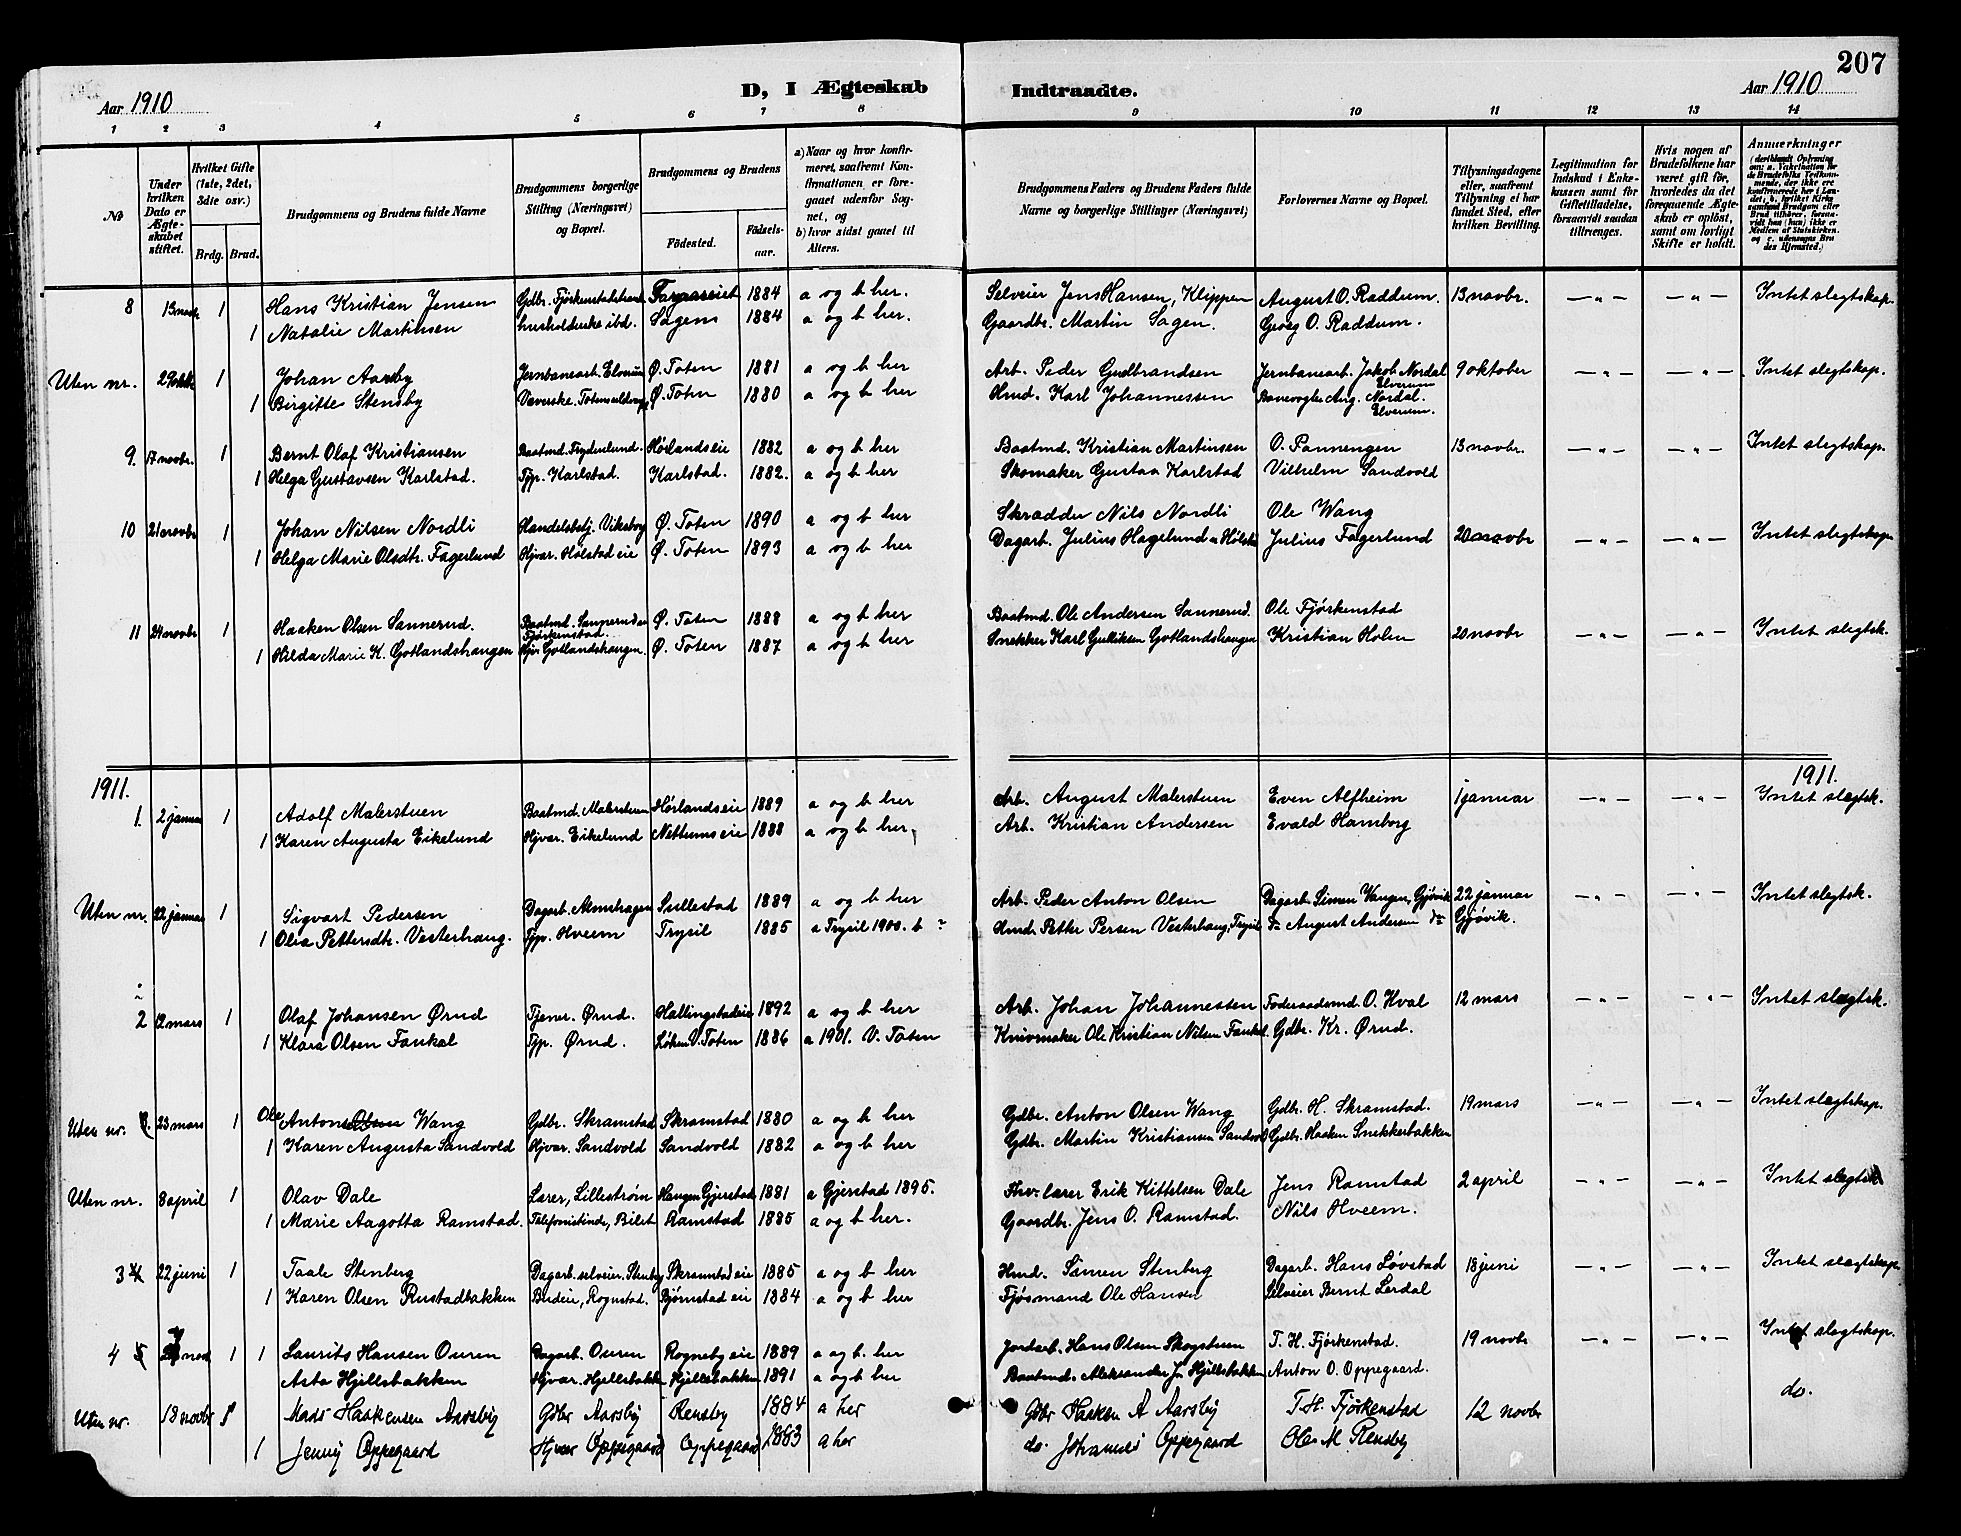 207
Aar 1910 D, I Ægteskab Indtraadte. Aar 1910
1 2 3 4 5 6 7 8 9 10 11 12 13 14
No
Under hvilken Dato er Ægteskabet stiftet.
Hvilket Gifte (1ste, 2det, 3die osv.)
Brdg. Brud.
Brudgommens og Brudens fulde Navne
Brudgommens borgerlige Stilling (Næringsvei) og Bopæl.
Brudgommens og Brudens
Födested. Födselsaar.
a) Naar og hvor konfirmeret, saafremt Konfirmationen er foregaaet udenfor Sognet, og
b) hvor sidst gaaet til Alters.
Brudgommens Faders og Brudens Faders fulde Navne og borgerlige Stillinger (Næringsvei)
Forlovernes Navne og Bopæl.
Tillysningsdagene eller, saafremt Tillysning ei har fundet Sted, efter hvilken Bevilling.
Legitimation for Indskud i Enkekassen samt for Giftetilladelse, forsaavidt saadan tiltrænges.
Hvis nogen af Brudefolkene har været gift för, hvorledes da det foregaaende Ægteskab er oplöst, samt om lovligt Skifte er holdt.
Anmærkninger
8 13 novbr 1 Hans Kristian Jensen Gdbr. Fjørkenstad 1884 a og b her. Selveier Jens Hansen, Klippen August O. Raddum. 13 novbr. — „ — — „ — Intet slegtskap.
1 Natalie Martinsen husholderske ibd. Sagens 1884 a og b her. Gaardbr. Martin Sagen. Georg O. Raddum.
Uten nr. 29 oktbr 1 Johan Aarsby Jernbanearb. Elverum Ø. Toten 1881 a og b her Arb. Peder Gudbrandsen Jernbanearb. Jakob Nordal Elverum 9 oktober — „ — — „ — Intet slegtskap.
1 Birgitte Stensby Væverske. Ø. Toten 1880 a og b her Hmd. Karl Johannessen Banevogter Aug. Nordal. Elverum.
9. 17 novbr. 1 Bernt Olaf Kristiansen Baatmd. Frydenlund. Hørlandseie 1882 a og b her Baatmd. Kristian Martinsen O. Pannengen 13 novbr. — „ — — „ — Intet slegtskap.
1 Helga Gustavsen Karlstad. Tjp. Karlstad. Karlstad. 1882. a og b her Skomaker Gustav Karlstad Vilhelm Sandvold
10 21 novbr 1 Johan Nilsen Nordli Handelsbetj. Viksborg Ø. Toten 1890 a og b her Skrædder Nils Nordli Ole Wang 20 novbr — „ — — „ — Intet slegtskap
1 Helga Marie Olsdtr. Fagerlund Hjvær. Hølstad eie Ø. Toten 1893 a og b her Dagarb. Julius Hagelund Julius Fagerlund
11 24 novbr 1 Haaken Olsen Sannerud. Baatmd. Sannerud Fjørkenstad. Ø. Toten 1888 a og b her Baatmd. Ole Andersen Sannerud. Ole Fjørkenstad 20 novbr — „ — — „ — Intet slegtsk.
1 Hilda Marie K. Gotlandshaugen Hjv. Gotlandshaugen. Ø. Toten 1887 a og b her Snekker Karl Gulliksen Gotlandshaugen Kristian Holm
1911. 1911.
1. 2 januar 1 Adolf Malerstuen Baatmd. Malerstuen Hørlandseie 1889 a og b her Arb. August Malerstuen Even Alfheim 1 januar — „ — — „ — Intet slegtsk.
1 Karen Augusta Eikelund Hjvær. Eikelund Nettums eie 1888 a og b her, Arb. Kristian Andersen Evald Hamborg
Uten nr. 22 januar 1 Sigvart Pedersen Dagarb. Almshagen Sullestad 1889 a og b her Arb. Peder Anton Olsen Dagarb. Simen Vangen, Gjøvik 22 januar Gjøvik. — „ — — „ — Intet slegtsk.
1 Olia Pettersdtr. Vesterhaug. Tjp. Hveem Trysil 1885 a Trysil 1900. b ? Hmd. Petter Persen Vesterhaug, Trysil Do August Andersen do
2 12 mars 1 Olaf Johansen Ørud Tjener. Ørud. Hallingstadeie 1892 a og b her Arb. Johan Johannessen Føderaadsmd. O. Hval 12 mars — „ — — „ — Intet slægtsk.
1 Klara Olsen Faukal Tjp. Ørud. Løken V. Toten 1886 a 1901. V. Toten Knivmaker Ole Kristian Nilsen Faukal. Gdbr. Kr. Ørud.
Uten nr. 23 mars 1 Ole Anton Olsen Wang Gdbr. Skramstad Skramstad 1880 a og b her Gdbr. Anton Olsen Wang Gdbr. H. Skramstad. 19 mars — „ — — „ — Intet slegtskap.
1 Karen Augusta Sandvold Hjvær. Sandvold Sandvold 1882 a og b her Gdbr. Martin Kristiansen Sandvold Gdbr. Haaken Snekkerbakken
Uten nr. 8 april 1 Olav Dale Lærer, Lillestrøm Haugen Gjerstad 1881 a Gjerstad 1895. Fhv. lærer Erik Kittelsen Dale Jens Ramstad 2 april — „ — — „ — Intet slegtsk
1 Marie Aagotta Ramstad. Telefonistinde, Bilet Ramstad 1885 a og b her. Gaardbr. Jens O. Ramstad. Nils Hveem.
3 4 22 juni 1 Taale Stenberg Dagarb. selveier. Stenberg Skramstad eie 1885 a og b her Hmd. Simen Stenberg Dagarb. Hans Løvstad 18 juni — „ — — „ — Intet slegtskap.
1 Karen Olsen Rustadbakken Budeie, Rognstad. Bjørnstad eie 1884 a og b her Fjøsmand Ole Hansen Selveier Bernt Lerdal
4 5 nov 1 1 Laurits Hansen Ouren Dagarb. Ouren Rogneby eie 1889 a og b her Jordarb. Hans Olsen Skogstuen T. H. Fjørkenstad. 19 novbr — „ — — „ — Intet slegtskap.
Asta Hjellebakken Hjvær. Hjellebakken Hjellebakken 1891 a og b her Baatmd. Aleksander Hjellebakken Anton O. Oppegaard.
Uten nr. 18 novbr 1 Mads Haakensen Aarsby Gdbr Aarsby Rensby 1884 a her Gdbr Haaken A Aarsby T. H. Fjørkenstad 12 novbr do.
1 Jenny Oppegaard Hjvær Oppegaard Oppegaard 1883 a her do. Johannes Oppegaard Ole M. Rensby